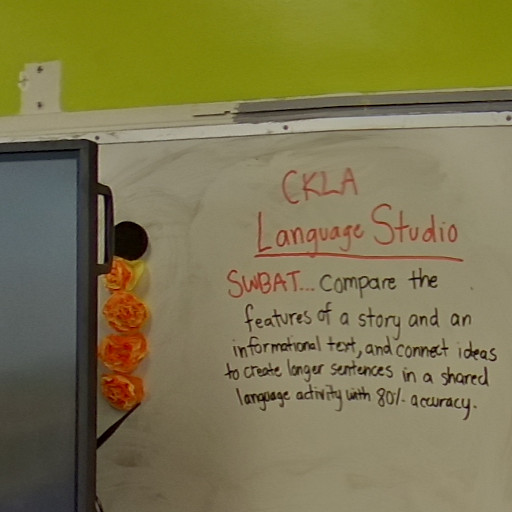 CKLA
Language Studio
SWBAT... compare the
features of a story and an
informational text, and connect ideas
to create longer sentences in a shared
language activity with 80% accuracy.